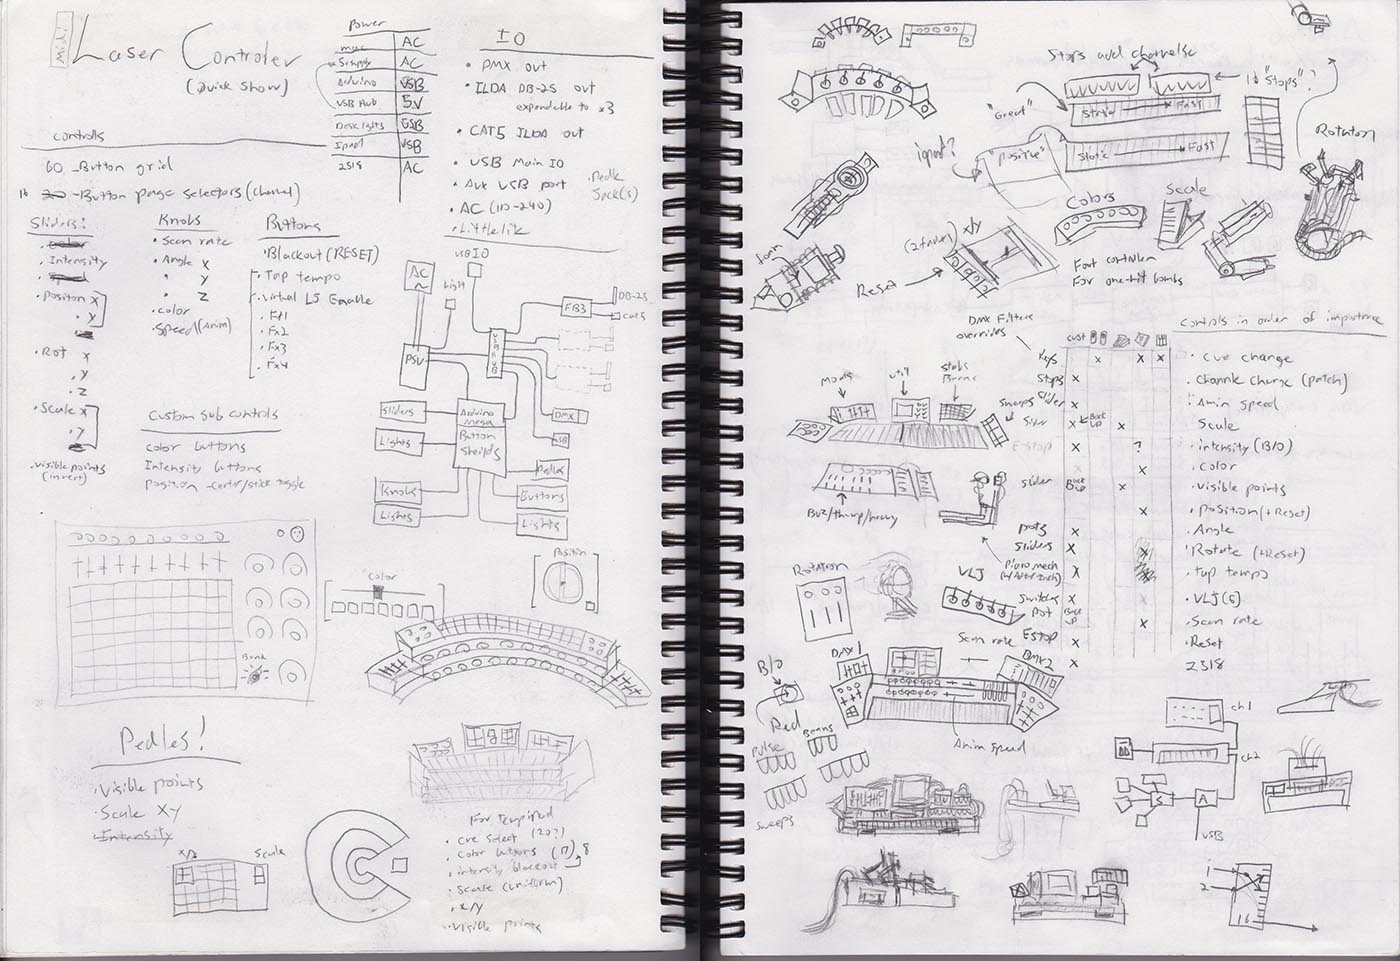 midi
Laser Controler
(Quick Show)
Power
AC
5v supply AC
Arduino USB
USB Hub 5V
Desk lights USB
Ipad USB
2518 AC
IO
• DMX out
• ILDA DB-25 out
expandable to x3
• CAT5 ILDA out
• USB Main IO
• Aux USB port
• Pedle
Jack(s)
• AC (110-240)
controlls
60 -Button grid
16 20 -Button page selectors (channel)
Sliders:
• color
• Intensity
• Speed
• Positon X
• Y
• Rot X
• Y
• Z
• Scale X
• Y
• Visible points
(invert)
Knobs
• Scan rate
• Angle X
" Y
" Z
• color
• Speed (Anim)
Buttons
• Blackout (RESET)
• Tap tempo
• Virtual LJ Enable
• Fx1
• Fx2
• Fx3
• Fx4
Custom Sub controls
Color buttons
Intensity buttons
Position -Center/stick toggle
USB IO
AC
Light
PSU
USB HUB
FB3
DB-25
cat5
DMX
USB
Sliders
Lights
Arduino
mega
Button
Sheilds
Pedles
Knobs
Lights
Buttons
Lights
Color
Position
Bank
Pedles!
• Visible points
• Scale XY
• Intensity
XY
Scale
• Cue Select (20?)
• Color buttons (17) 8
• intensity blackout
• Scale (uniform)
• x/y
• Visible points
Stops and channels
"Great"
Static Fast
"positive"
Static Fast
Ipad?
16 "Stops"?
Rotation
Colors
Scale
(2 faders) X/Y
Reset
Foot controller
For one-hit bombs
DMX Filters
overrides
Controls in order of importance
cust
Keys x x x
• Cue change
Stops x
• Channle Change (patch)
Slider x
• Anim speed
Slider x Back up x
• Scale
E-stop x ?
• intensity (B/O)
x
• color
slider Back up x
• Visible points
x
• position (+Reset)
pots x
• Angle
Sliders x
• Rotate (+Reset)
x
• tap tempo
switches x
• VLJ(5)
Pot Back up x
• Scan rate
EStop x
• Reset
x
2518
util
Sweeps
Buz/thump/heavy
Rotation
VLJ
Scan rate
DMX1
DMX2
B/O
Red
Pulse
Beams
Sweeps
Anim speed
ch1
ch2
S
A
USB
1
2
16